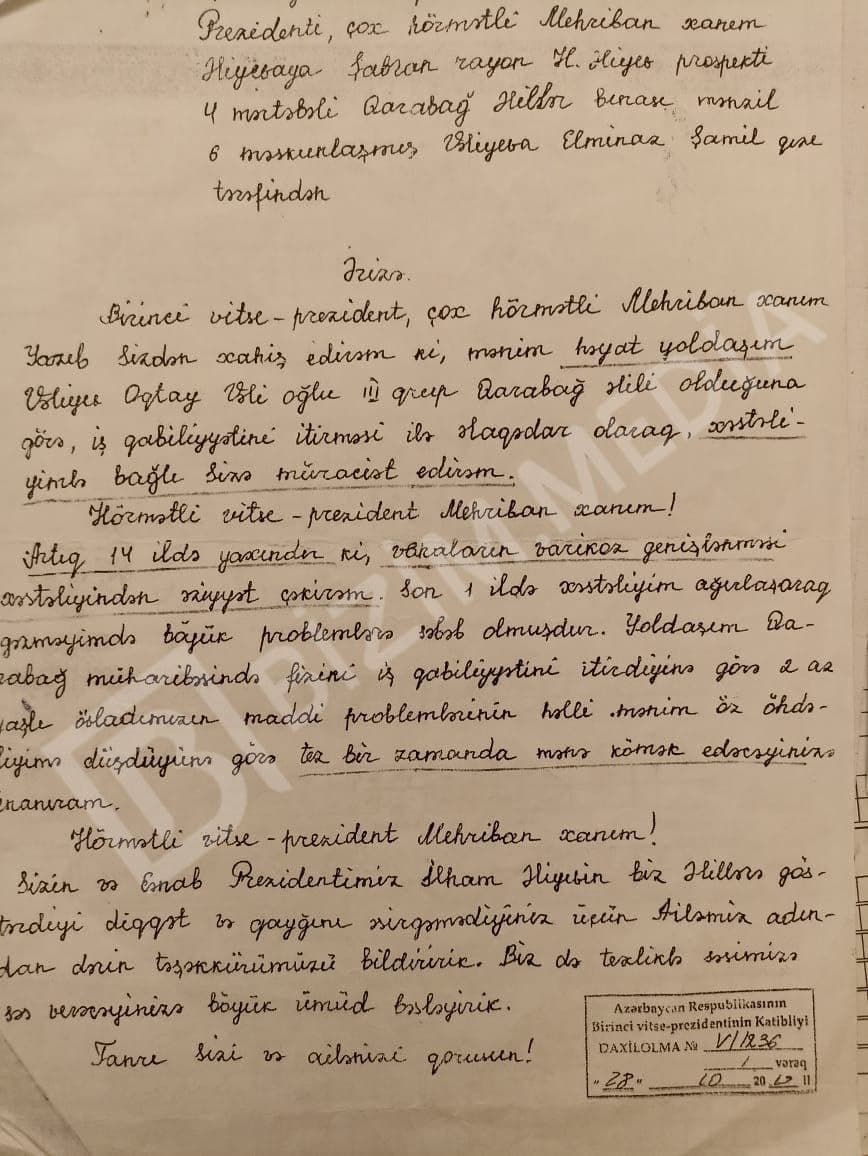 Prezidenti, çox hörmətli Mehriban xanım
Əliyevaya Şabran rayon H. Əliyev prospekti
4 mərtəbəli Qarabağ Əlillər binası mənzil
6 məskunlaşmış Vəliyeva Elminaz Şamil qızı
tərəfindən
Ərizə.
Birinci vitse-prezident, çox hörmətli Mehriban xanım
Yazıb Sizdən xahiş edirəm ki, mənim həyat yoldaşım
Vəliyev Oqtay Vəli oğlu III qrup Qarabağ əlili olduğuna
görə, iş qabiliyyətini itirməsi ilə əlaqədar olaraq, xəstəli-
yimlə bağlı Sizə müraciət edirəm.
Hörmətli vitse-prezident Mehriban xanım!
Artıq 14 ildə yaxındır ki, venaların varikoz genişlənməsi
xəstəliyindən əziyyət çəkirəm. Son 1 ildə xəstəliyim ağırlaşaraq
gəzməyimdə böyük problemlərə səbəb olmuşdur. Yoldaşım Qa-
rabağ müharibəsində fiziki iş qabiliyyətini itirdiyinə görə 2 az
yaşlı övladımızın maddi problemlərinin həlli mənim öz öhdə-
liyimə düşdüyünə görə tez bir zamanda mənə kömək edəcəyinizə
inanıram.
Hörmətli vitse-prezident Mehriban xanım!
Sizin və Cənab Prezidentimiz İlham Əliyevin biz Əlillərə gös-
tərdiyi diqqət və qayğını əsirgəmədiyiniz üçün Ailəmiz adın-
dan dərin təşəkkürümüzü bildiririk. Biz də tezliklə səsimizə
səs verəcəyinizə böyük ümüd bəsləyirik.
Tanrı Sizi və ailənizi qorusun!
Azərbaycan Respublikasının
Birinci vitse-prezidentinin Katibliyi
DAXİLOLMA № VI/1236
1 vərəq
"28" 10 20 il
BİZİM MEDIA